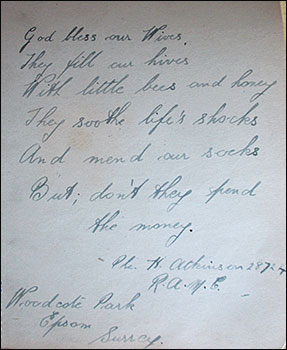 God bless our Wives,
They fill our hives
With little bees and honey
They soothe life's shocks
And mend our socks
But; don't they spend
the money.
Pte. H. Atkinson 28724
R.A.M.C.
Woodcote Park
Epsom
Surrey.